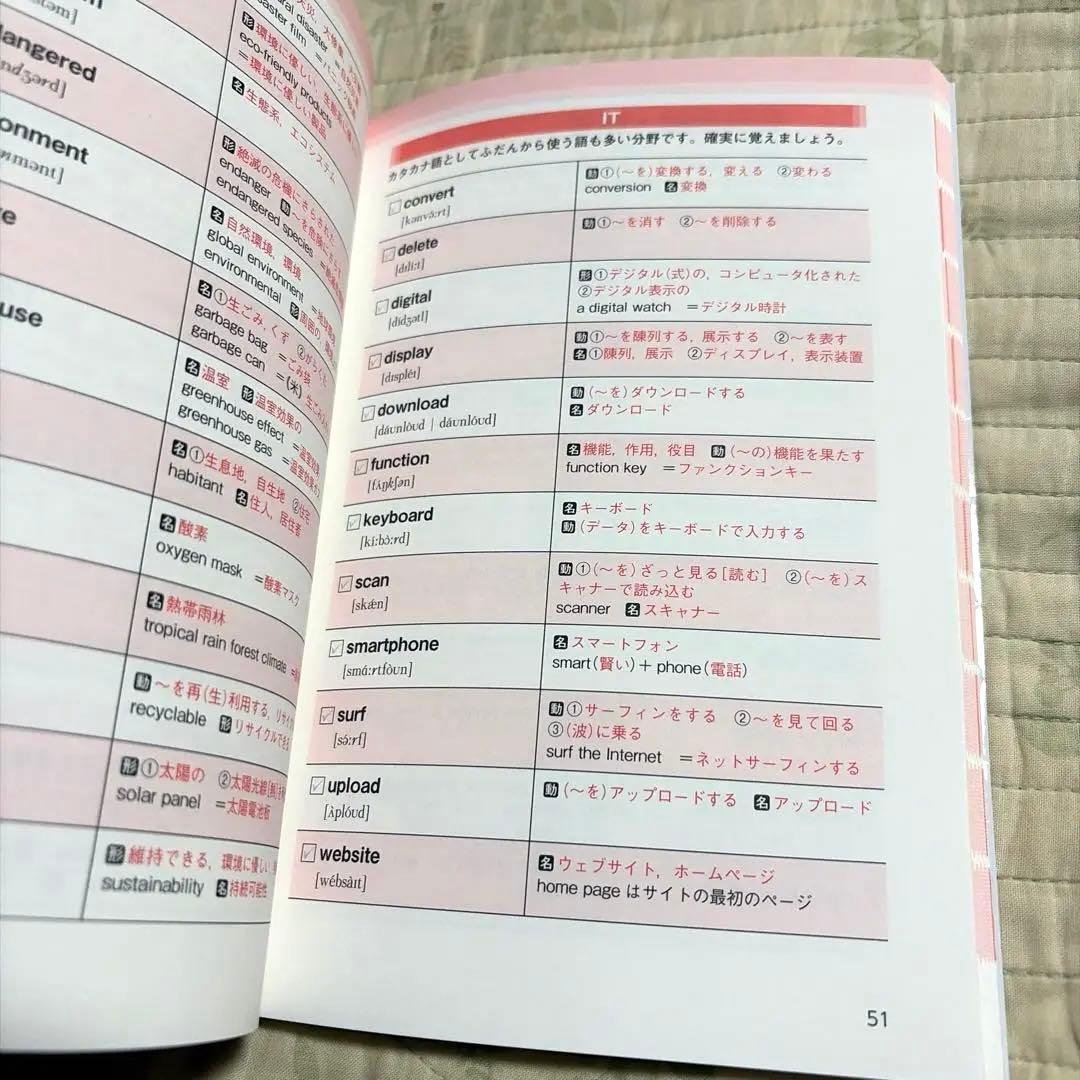 angered
onment
use
大災害
disaster
aster film =パニック
形環境に優しい,生態系に
eco-friendly products
=環境に優しい製品
名生態系,エコシステム
形絶滅の危機にさらされた
endanger 動〜を危険にさらす
endangered species
名自然環境,環境
global environment =地球環境
environmental 形周囲の
名①生ごみ,くず ②がらくた
garbage bag =ごみ袋
garbage can =(米)生ごみ入れ
名温室 形温室効果の
greenhouse effect =温室効果
greenhouse gas =温室効果ガス
名①生息地,自生地 ②住宅
habitant 名住人,居住者
名酸素
oxygen mask =酸素マスク
名熱帯雨林
tropical rain forest climate
動〜を再(生)利用する,リサイ
recyclable 形リサイクルでき
形①太陽の ②太陽光線[熱]を
solar panel =太陽電池板
形維持できる,環境に優しい
sustainability 名持続可能性
IT
カタカナ語としてふだんから使う語も多い分野です。確実に覚えましょう。
convert
[kənvə́ːrt]
動①(〜を)変換する,変える ②変わる
conversion 名変換
delete
[dɪlíːt]
動①〜を消す ②〜を削除する
digital
[dídʒətl]
形①デジタル(式)の,コンピュータ化された
②デジタル表示の
a digital watch =デジタル時計
display
[dɪspléɪ]
動①〜を陳列する,展示する ②〜を表す
名①陳列,展示 ②ディスプレイ,表示装置
download
[dáunlòud | dáunlóud]
動(〜を)ダウンロードする
名ダウンロード
function
[fʌ́ŋkʃən]
名機能,作用,役目 動(〜の)機能を果たす
function key =ファンクションキー
keyboard
[kíːbɔ̀ːrd]
名キーボード
動(データ)をキーボードで入力する
scan
[skǽn]
動①(〜を)ざっと見る[読む] ②(〜を)ス
キャナーで読み込む
scanner 名スキャナー
smartphone
[smɑ́ːrtfòun]
名スマートフォン
smart(賢い)+phone(電話)
surf
[sə́ːrf]
動①サーフィンをする ②〜を見て回る
③(波)に乗る
surf the Internet =ネットサーフィンする
upload
[ʌ̀plóud]
動(〜を)アップロードする 名アップロード
website
[wébsàɪt]
名ウェブサイト,ホームページ
home page はサイトの最初のページ
51